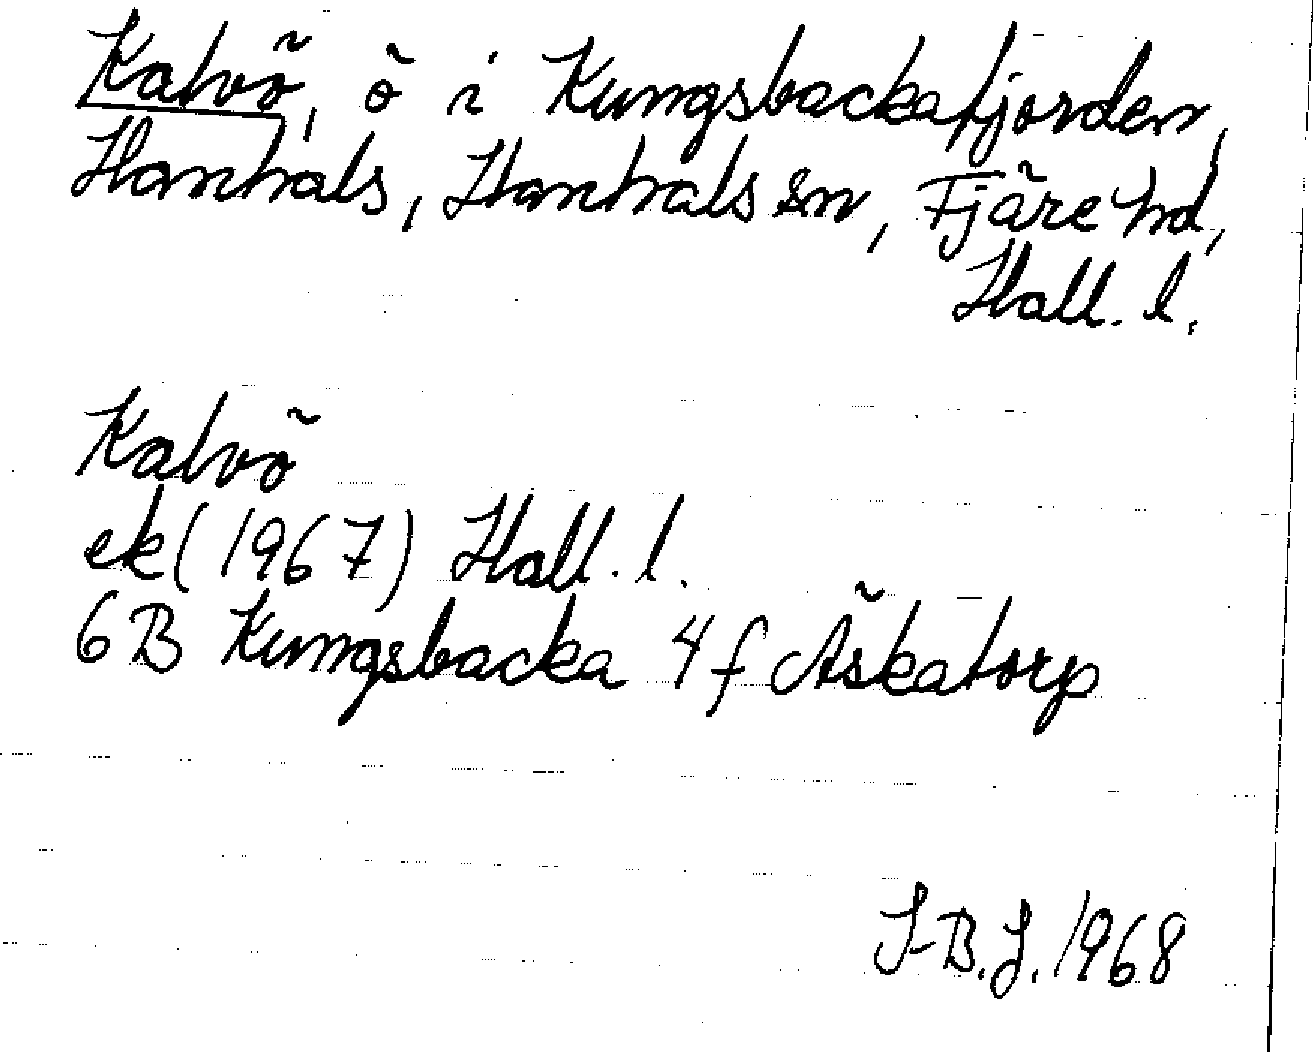 Kalvö, ö i Kungsbackafjorden,
Hanhals, Hanhals sn, Fjäre hd,
Hall. l.
Kalvö
ek (1967) Hall. l.
6B Kungsbacka 4f Äskatorp
I-B.J. 1968